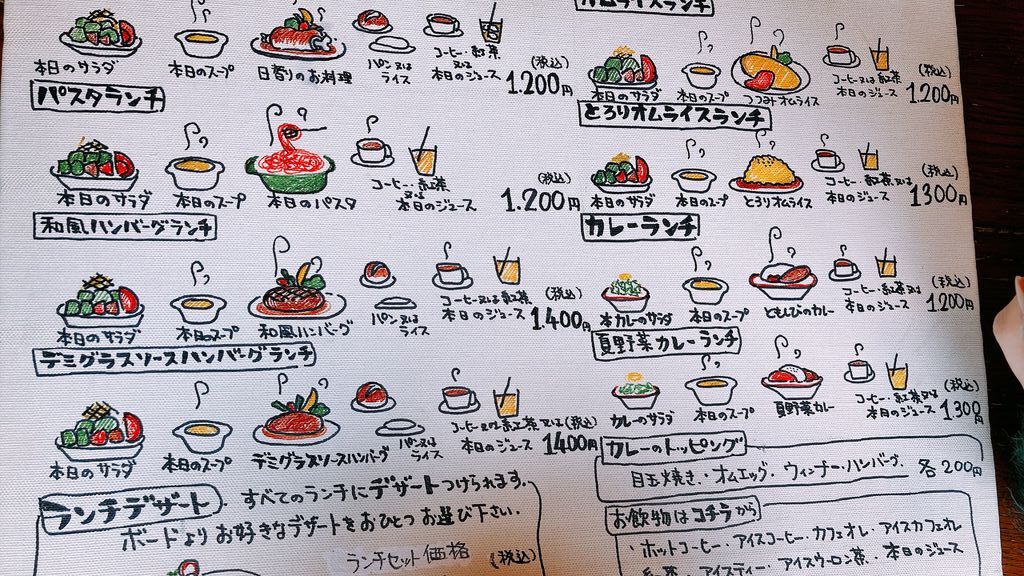 本日のサラダ
本日のスープ
日替りのお料理
パン又は
ライス
コーヒー・紅茶
又は
本日のジュース
(税込)
1.200円
パスタランチ
本日のサラダ
本日のスープ
本日のパスタ
コーヒー・紅茶
又は
本日のジュース
(税込)
1.200円
和風ハンバーグランチ
本日のサラダ
本日のスープ
和風ハンバーグ
パン又は
ライス
コーヒー又は紅茶
本日のジュース
(税込)
1.400円
デミグラスソースハンバーグランチ
本日のサラダ
本日のスープ
デミグラスソースハンバーグ
パン又は
ライス
コーヒー又は紅茶又は
本日のジュース
(税込)
1400円
ランチデザート
すべてのランチにデザートつけられます.
ボードよりお好きなデザートをおひとつお選び下さい.
ランチセット価格
(税込)
オムライスランチ
本日のサラダ
本日のスープ
つつみオムライス
コーヒー又は紅茶
本日のジュース
(税込)
1.200円
とろりオムライスランチ
本日のサラダ
本日のスープ
とろりオムライス
コーヒー・紅茶又は
本日のジュース
(税込)
1300円
カレーランチ
本カレーのサラダ
本日のスープ
ともしびのカレー
コーヒー・紅茶又は
本日のジュース
(税込)
1.200円
夏野菜カレーランチ
カレーのサラダ
本日のスープ
夏野菜カレー
コーヒー・紅茶又は
本日のジュース
(税込)
1.300円
カレーのトッピング
目玉焼き・オムエッグ・ウィンナー・ハンバーグ. 各200円
お飲物はコチラから
・ホットコーヒー・アイスコーヒー・カフェオレ・アイスカフェオレ
紅茶・アイスティー・アイスウーロン茶・本日のジュース